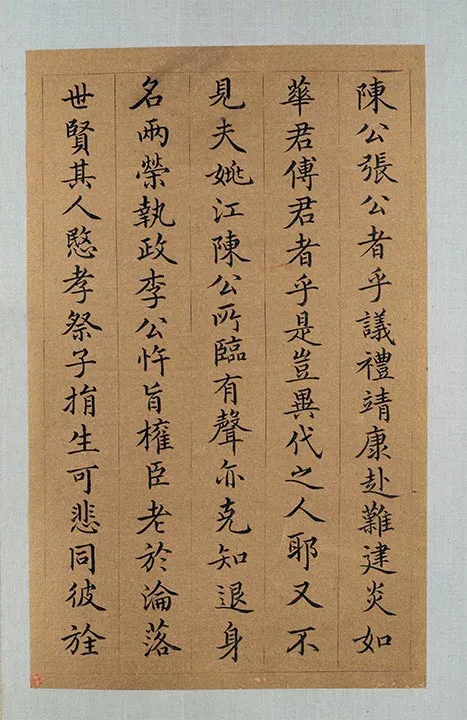 陳公張公者乎議禮靖康赴難建炎如
華君傅君者乎是豈異代之人耶又不
見夫姚江陳公所臨有聲亦克知退身
名兩榮執政李公忤旨榷臣老於淪落
世賢其人愍孝祭子捐生可悲同彼旌